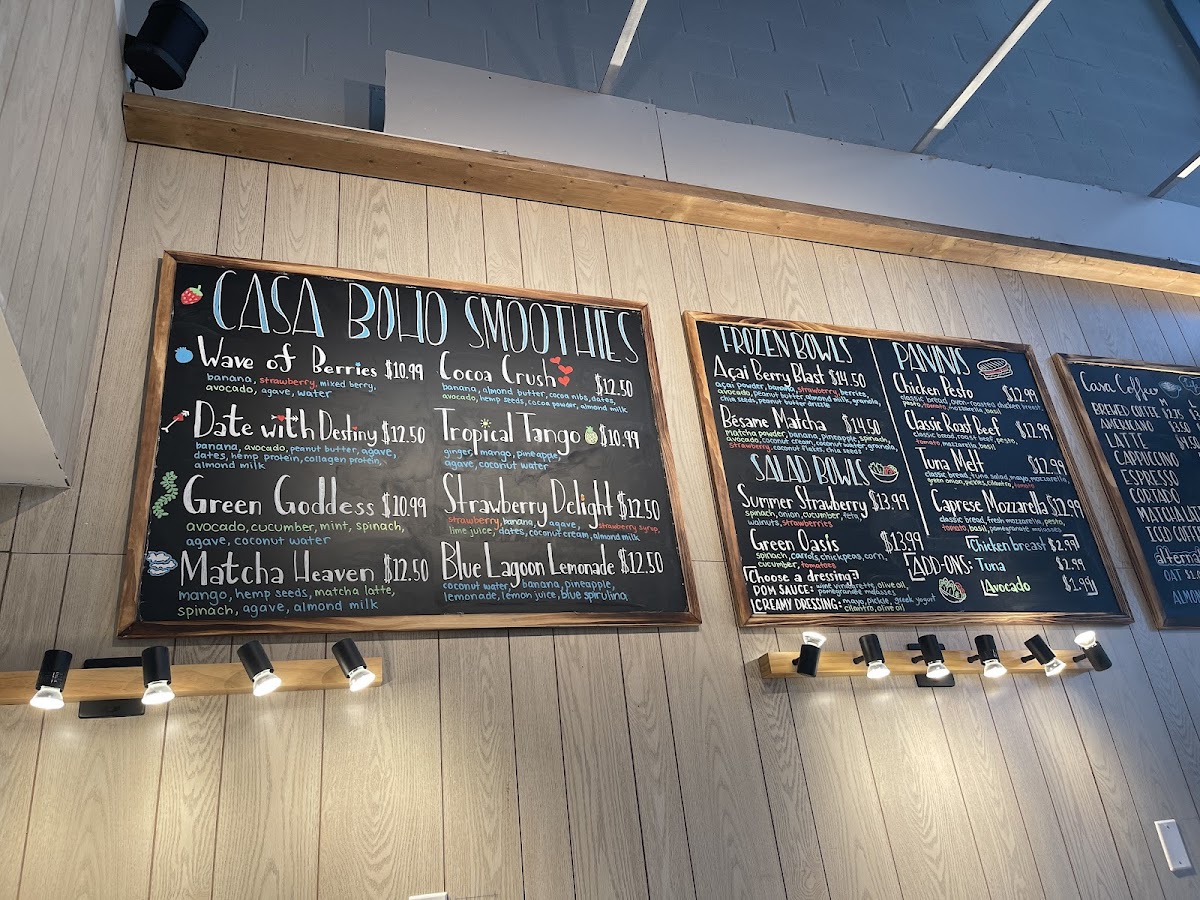 CASA BOHO SMOOTHIES
Wave of Berries $10.99
banana, strawberry, mixed berry,
avocado, agave, water
Date with Destiny $12.50
banana, avocado, peanut butter, agave,
dates, hemp protein, collagen protein,
almond milk
Green Goddess $10.99
avocado, cucumber, mint, spinach,
agave, coconut water
Matcha Heaven $12.50
mango, hemp seeds, matcha latte,
spinach, agave, almond milk
Cocoa Crush $12.50
banana, almond butter, cacao nibs, dates,
avocado, hemp seeds, cocoa powder, almond milk
Tropical Tango $10.99
ginger, mango, pineapple,
agave, coconut water
Strawberry Delight $12.50
strawberry, banana, agave, strawberry syrup,
lime juice, dates, coconut cream, almond milk
Blue Lagoon Lemonade $12.50
coconut water, banana, pineapple,
lemonade, lemon juice, blue spirulina
FROZEN BOWLS
Açai Berry Blast $14.50
açai powder, banana, strawberry, berries,
avocado, peanut butter, almond milk, granola,
chia seeds, peanut butter drizzle
Bésame Matcha $14.50
matcha powder, banana, pineapple, spinach,
avocado, coconut cream, coconut water, granola,
strawberry, coconut flakes, chia seeds
SALAD BOWLS
Summer Strawberry $13.99
spinach, onion, cucumber, feta,
walnuts, strawberries
Green Oasis $13.99
spinach, carrots, chickpeas, corn,
cucumber, tomatoes
Choose a dressing?
POM SAUCE: wine vinegarette, olive oil,
pomegranate molasses
CREAMY DRESSING: mayo, pickle, greek yogurt
cilantro, olive oil
PANINIS
Chicken Pesto $12.99
classic bread, oven-roasted chicken breast,
pesto, tomato, mozzarella, basil
Classic Roast Beef $12.99
classic bread, roast beef, pesto,
tomato, mozzarella, basil
Tuna Melt $12.99
classic bread, tuna salad, mayo, mozzarella,
green onion, pickles, cilantro, tomato
Caprese Mozzarella $12.99
classic bread, fresh mozzarella, pesto,
tomato, basil, pomegranate molasses
ADD-ONS:
Chicken breast $2.99
Tuna $2.99
Avocado $2.99
Casa Coffee
BREWED COFFEE
AMERICANO
LATTE
CAPPUCCINO
ESPRESSO
CORTADO
MATCHA
ICED COFFEE
OAT